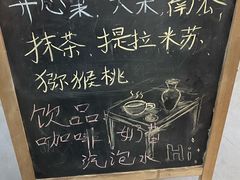 开心果、大米、南瓜
抹茶、提拉米苏、
猕猴桃
饮品
咖啡 奶
汽泡水 Hi